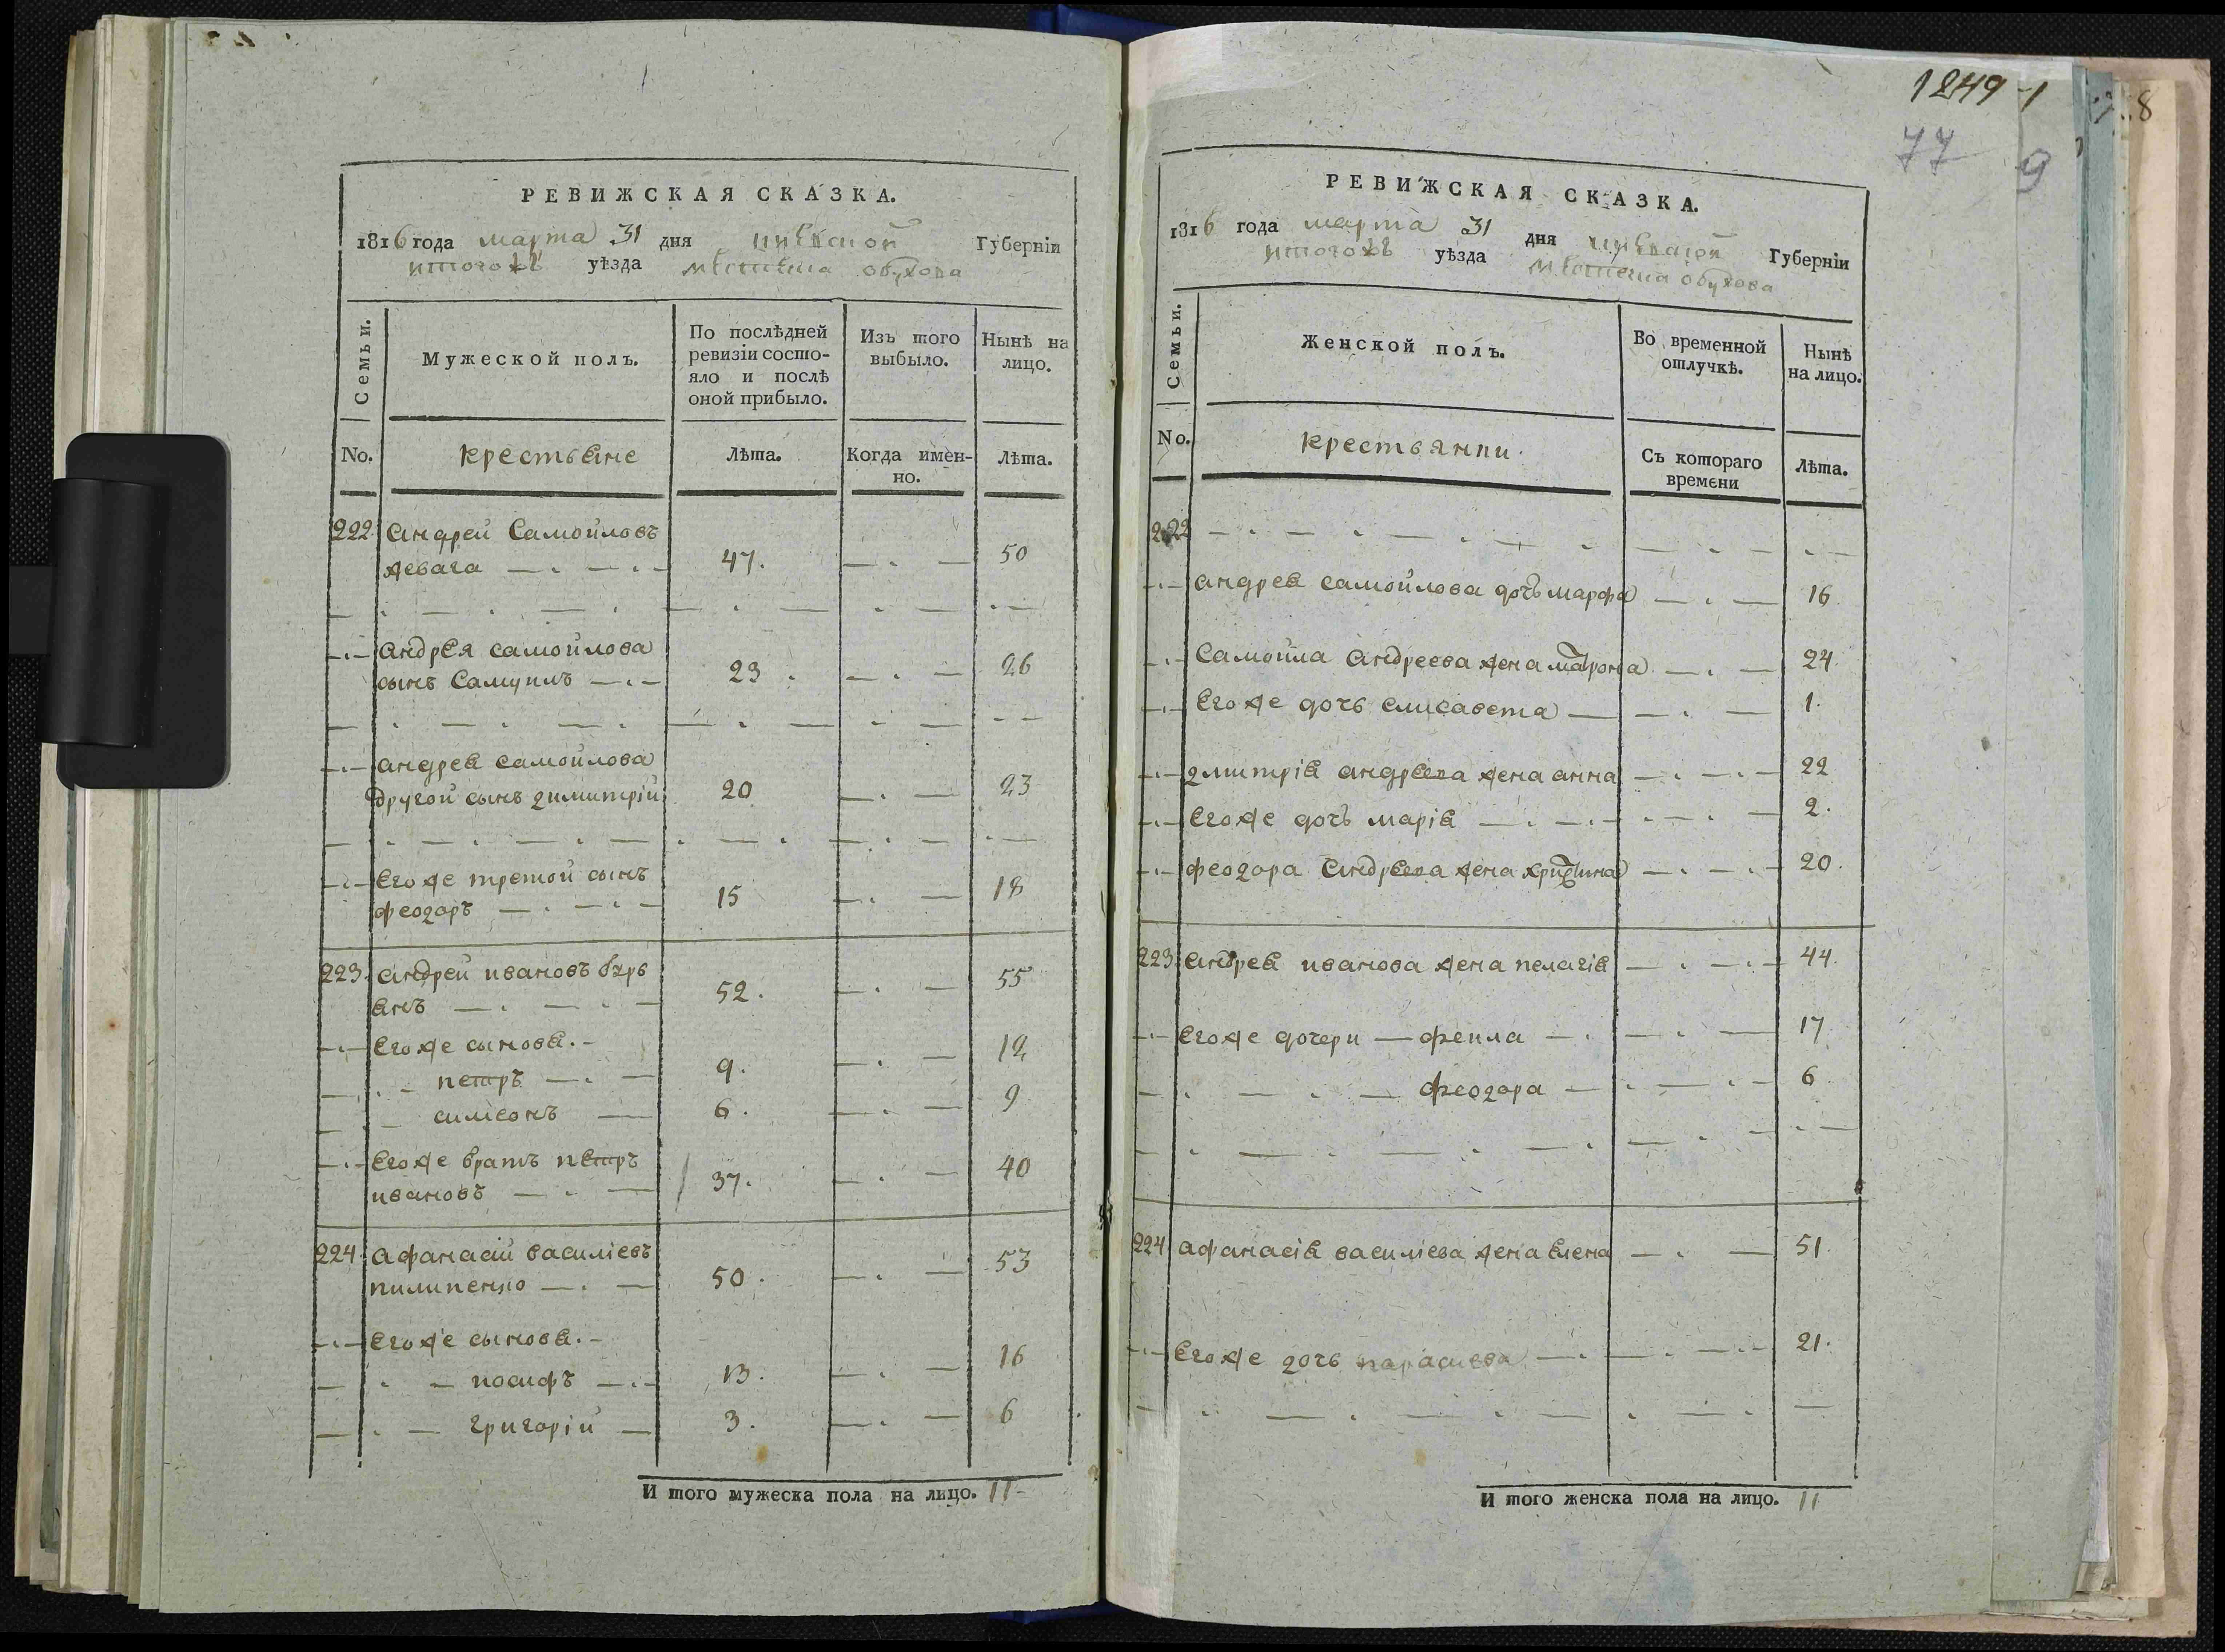 РЕВИЖСКАЯ СКАЗКА.
1816 года марта 31 дня Киевской Губерніи
уѣзда местечка обухова
Семьи.
Мужеской полъ.
По послѣдней ревизіи состо-
яло и послѣ
оной прибыло.
Изъ того
выбыло.
Нынѣ на
лицо.
No.
крестьяне
Лѣта.
Когда имен-
но.
Лѣта.
222. андрей Самойловъ
47. 50
андрея самойлова
сынъ Самуилъ 23. 26
андрея самойлова
другой сынъ димитрій 20 23
его же третой сынъ
феодоръ 15 18
223. андрей ивановъ
52. 55
его же сыновя.
петръ 9. 12
симеонъ 6. 9
его же братъ петръ
ивановъ 37. 40
224. афанасій василіевъ
пилипенко 50. 53
его же сыновя.
иосифъ 13. 16
григорій 3. 6
И того мужеска пола на лицо. 11
1249
77
9
8
РЕВИЖСКАЯ СКАЗКА.
1816 года марта 31 дня Киевской Губерніи
уѣзда местечка обухова
Семьи.
Женской полъ.
Во временной
отлучкѣ.
Нынѣ
на лицо.
No.
крестьянки
Съ котораго
времени
Лѣта.
222
андрея самойлова дочь марфа 16
Самойла андреева жена матрона 24.
его же дочь елисавета 1.
дмитрія андреева жена анна 22
его же дочь марія 2.
феодора андреева жена христина 20.
223. андрея иванова жена пелагія 44.
его же дочери — фекла 17
феодора 6.
224 афанасія василіева жена елена 51.
его же дочь параскева 21.
И того женска пола на лицо. 11